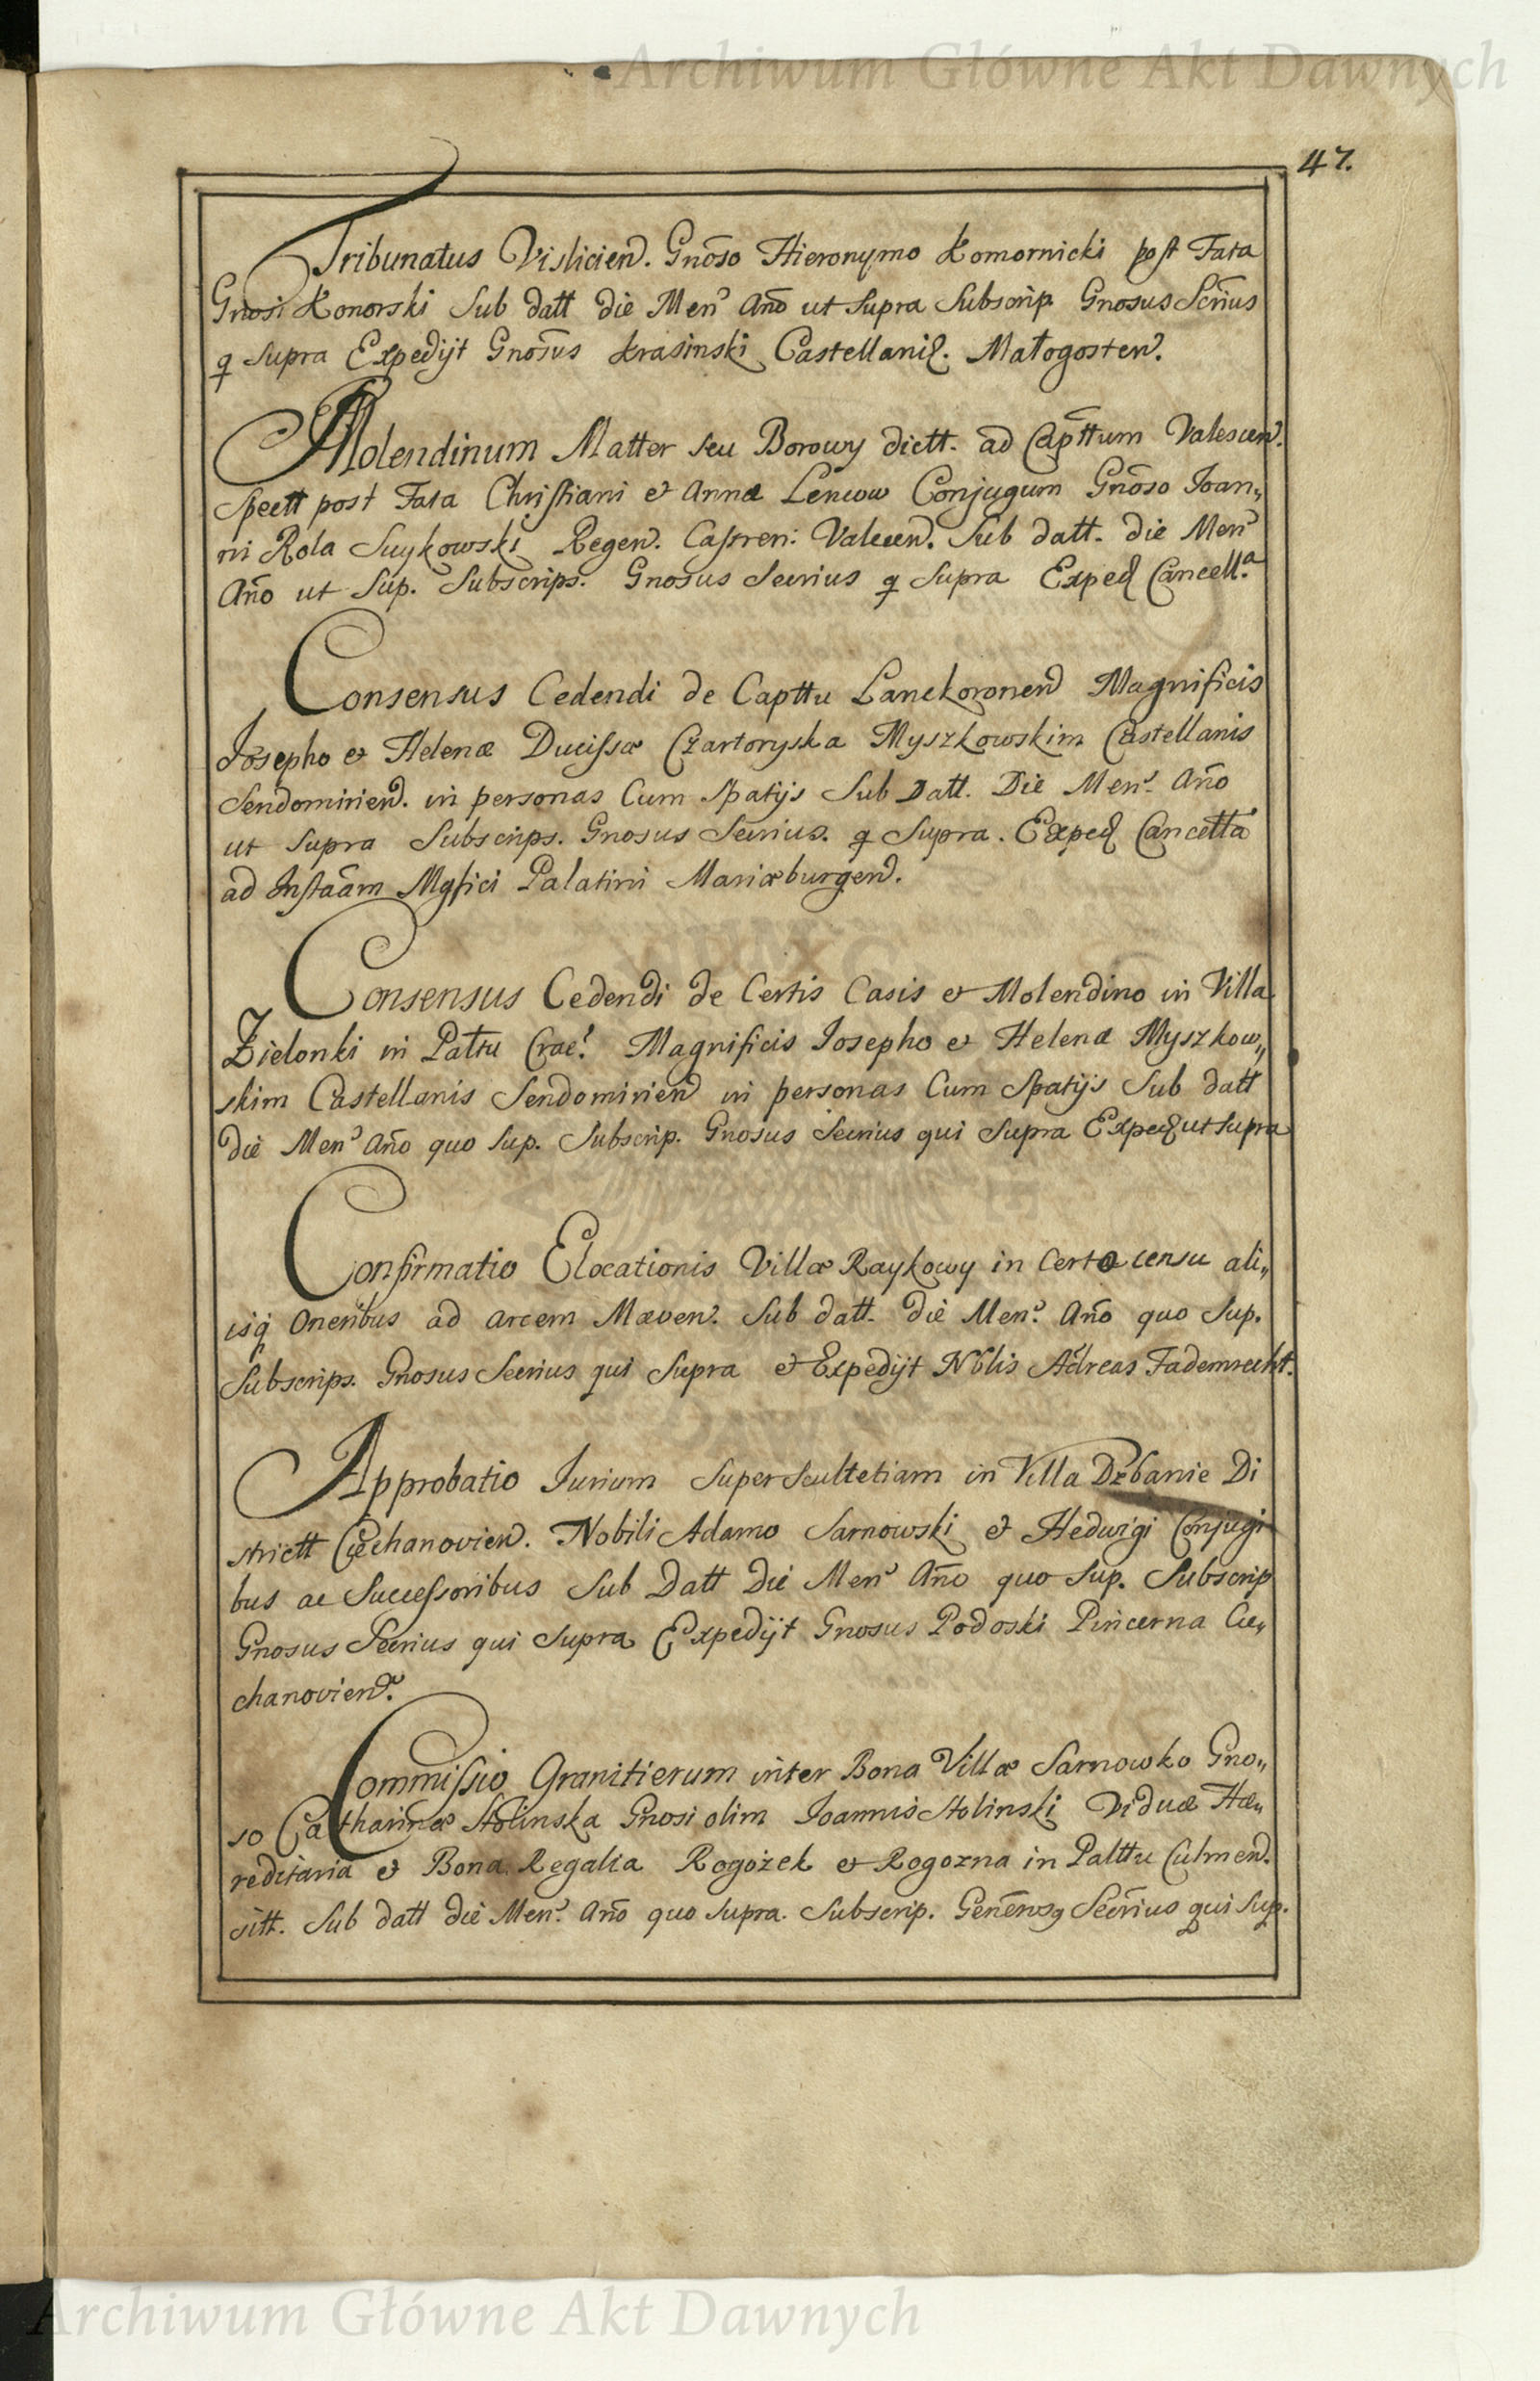 Archiwum Główne Akt Dawnych
47.
Tribunatus Vislicien. Gnõso Hieronymo Komornicki post Fata
Gnosi Konorski Sub datt die Men Año ut Supra Subscrip Gnosus Scrius
q Supra Expedijt Gnosus Krasinski Castellanid. Małogosten.
Molendinum Matter seu Borowy dictt. ad Capttum Valecen.
Spectt post Fata Christiani et Annæ Lencow Conjugum Gnõso Ioan„
ni Rola Suykowski Regen. Castren: Valecen. Sub datt. die Men
Año ut Sup. Subscrips. Gnosus Secrius q Supra Exped Cancell.a
Consensus Cedendi de Capttu Lanckoronen Magnificis
Josepho et Helenæ Ducissæ Czartoryska Myszkowskim Castellanis
Sendomirien. in personas Cum Spatijs Sub Datt. Die Men. Año
ut Supra Subscrips. Gnosus Secrius. q Supra. Exped Cancella
ad Instaãm Mgfici Palatini Mariæburgen.
Consensus Cedendi de Certis Casis et Molendino in Villa
Zielonki in Pattu Crac. Magnificis Iosepho et Helenæ Myszkow„
skim Castellanis Sendomirien in personas Cum Spatijs Sub datt
die Men Año quo Sup. Subscrip. Gnosus Secrius qui Supra Exped ut supra
Confirmatio Elocationis Villæ Raykowy in Certo censu ali„
isq Oneribus ad arcem Mæven. Sub datt. die Men. Año quo Sup.
Subscrips. Gnosus Secrius qui Supra et Expedijt Nblis Adreas Fademrecht.
Approbatio Jurium Super Scultetiam in Villa Drbanie Di
strictt Ciechanovien. Nobili Adamo Sarnowski et Hedwigi Conjugi
bus ac Successoribus Sub Datt Die Men Año quo Sup. Subscrip
Gnosus Secrius qui Supra Expedijt Gnosus Podoski Pincerna Cie„
chanovien.
Commissio Granitierum inter Bona Villæ Sarnowko Gno„
so Catharinæ Stolinska Gnosi olim Joannis Stolinski Viduæ Hæ„
reditaria et Bona Regalia Rogożek et Rogozna in Palttu Culmen.
sitt. Sub datt die Men. Año quo supra. Subscrip. Generosq Secrius qui Sup.
Archiwum Główne Akt Dawnych